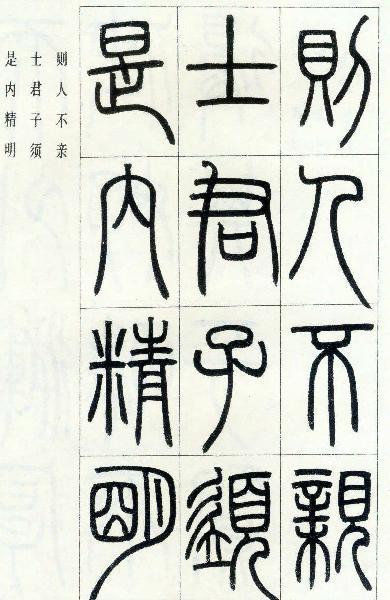 則人不親
士君子須
是内精明
则人不亲
士君子须
是内精明